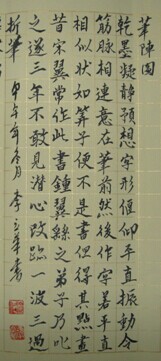 筆陣圖
乾墨凝静預想字形偃仰平直振動令
筋脉相連意在筆前然後作字若平直
相似状如算子便不是書但得其點畫
昔宋翼常作此書鍾翼繇之弟子乃叱
之遂三年不敢見潜心改跡一波三過
折筆 甲午年冬月 李